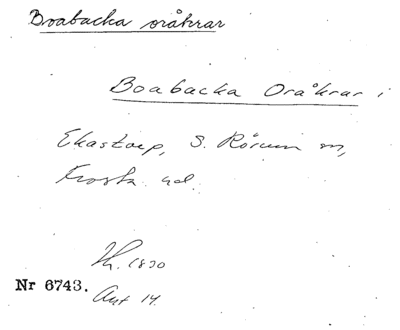 Boabacka oråkrar
Boabacka Oråkrar i
Ekastorp, S. Rörum sn,
Frosta hd.
Lh. 1830
Nr 6743.
Akt 14.